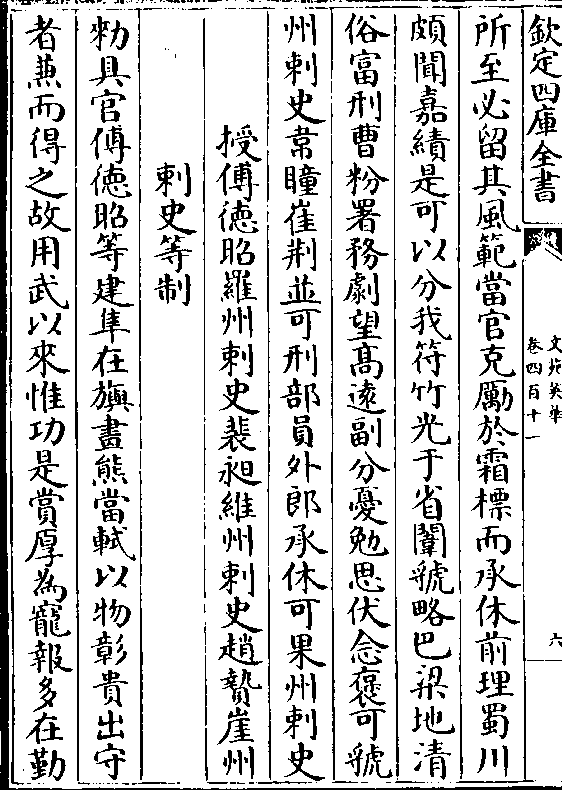 欽定四庫全書
文苑英華
卷四百十一
六
所至必留其風範當官克勵於霜標而承休前理蜀川
頗聞嘉績是可以分我符竹光于省闈虢略巴梁地清
俗富刑曹粉署務劇望高逺副分憂勉思伏念褒可虢
州刺史常瞳崔荆並可刑部員外郎承休可果州刺史
授傅徳昭羅州刺史裴昶維州刺史趙贄崖州
刺史等制
勑具官傅徳昭等建隼在旟畫熊當軾以物彰貴出守
者兼而得之故用武以來惟功是賞厚為寵報多在勤